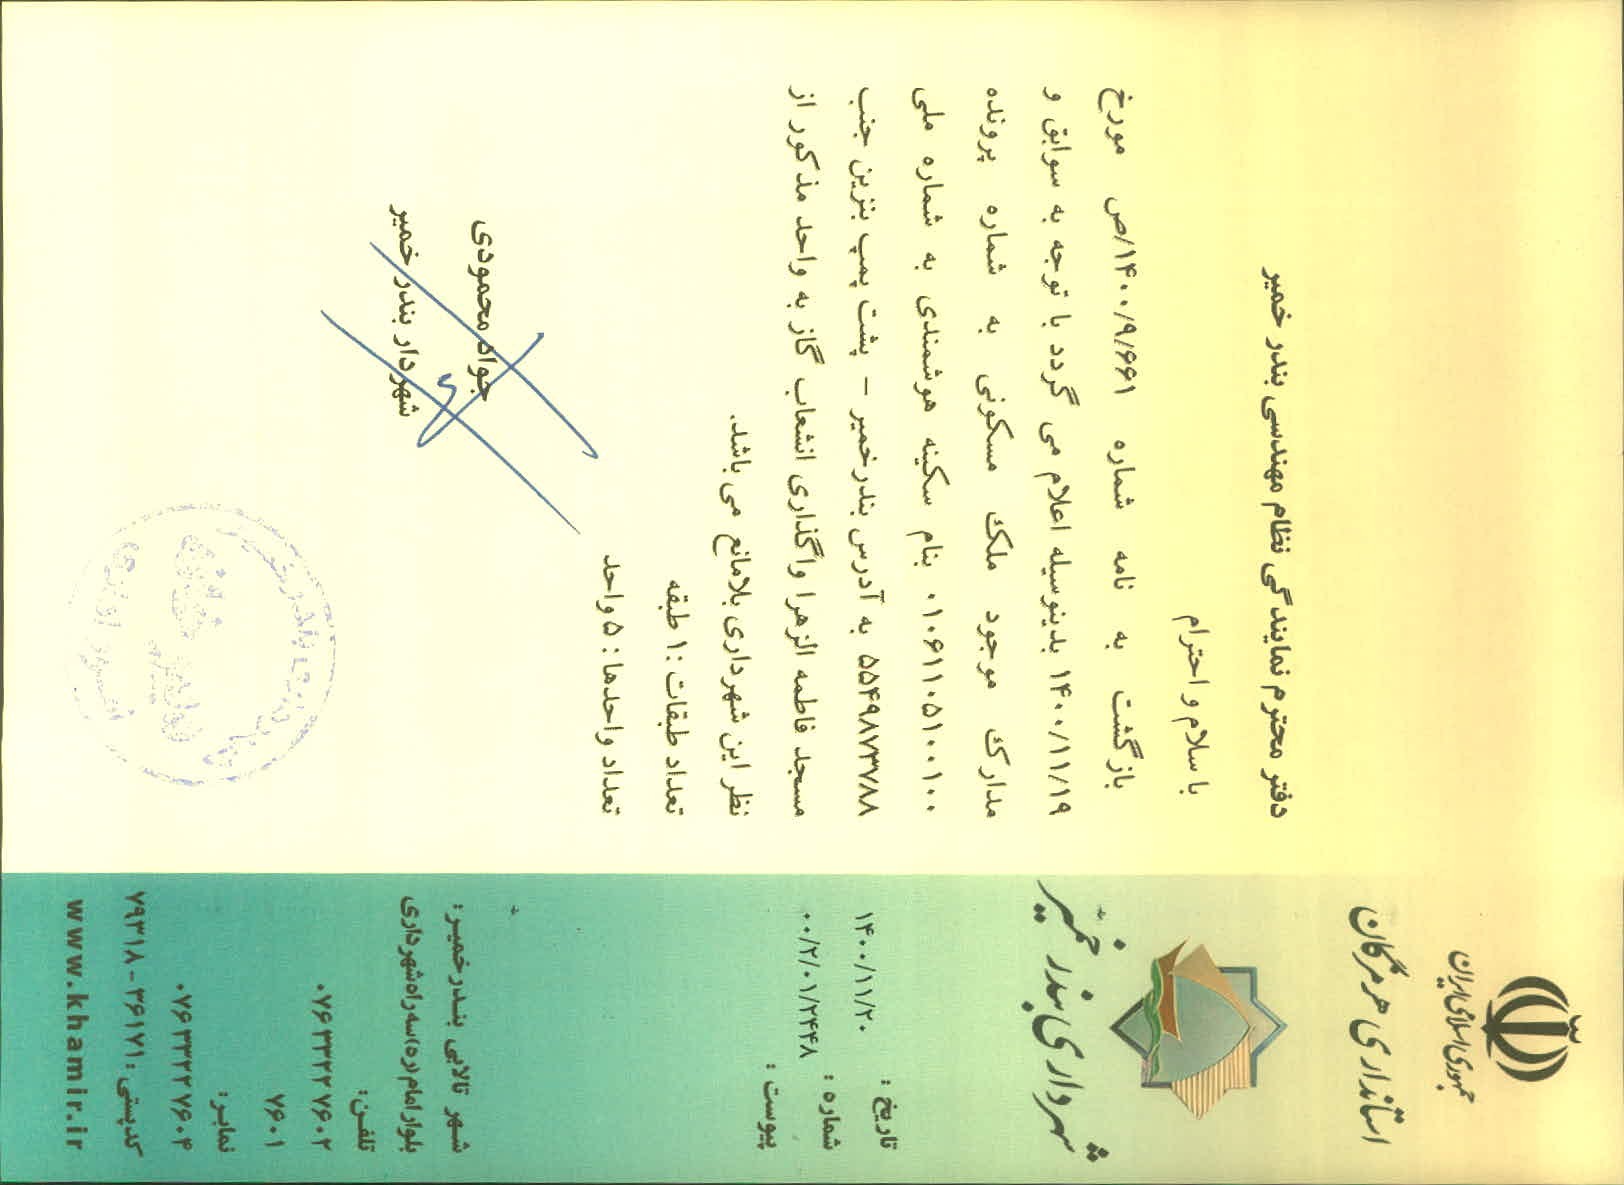 جمهوری اسلامی ایران
استانداری هرمزگان
شهرداری بندر خمیر
تاریخ : ۱۴۰۰/۱۱/۲۰
شماره : ۰۰/۲/۰۱/۲۴۴۸
پیوست :
دفتر محترم نمایندگی نظام مهندسی بندر خمیر
با سلام و احترام
بازگشت به نامه شماره ۱۴۰۰/۹/۶۶۱/ص مورخ
۱۴۰۰/۱۱/۱۹ بدینوسیله اعلام می گردد با توجه به سوابق و
مدارک موجود ملک مسکونی به شماره پرونده
۰۱۰۶۱۱۰۵۱۰۰۱۰۰ بنام سکینه هوشمندی به شماره ملی
۵۵۴۹۸۷۳۷۸۸ به آدرس بندرخمیر – پشت پمپ بنزین جنب
مسجد فاطمه الزهرا واگذاری انشعاب گاز به واحد مذکور از
نظر این شهرداری بلامانع می باشد.
تعداد طبقات :۱ طبقه
تعداد واحدها : ۵ واحد
جواد محمودی
شهردار بندر خمیر
شهر تالابی بندرخمیر:
بلوار امام (ره) سه راه شهرداری
تلفن:
۰۷۶۳۳۲۲۷۶۰۲
۷۶۰۱
نمابر:
۰۷۶۳۳۲۲۷۶۰۴
کدپستی : ۳۶۱۷۱ - ۷۹۳۱۸
www.khamir.ir